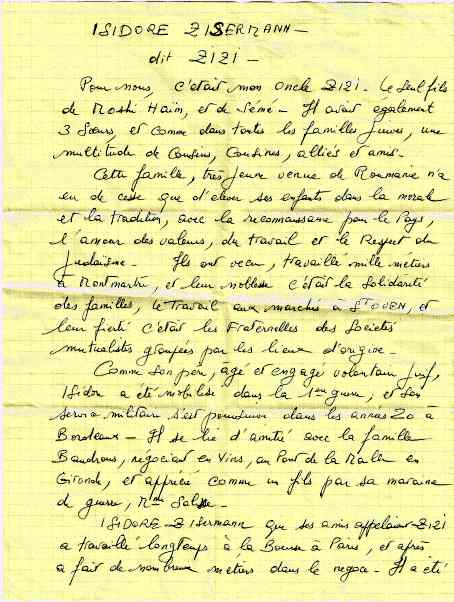 ISIDORE ZISERMANN -
dit ZIZI -
Pour nous, c'était mon oncle ZIZI - Le seul fils
de Moshi Haïm, et de Sémé - Il avait également
3 Sœurs, et comme dans toutes les familles Juives, une
multitude de Cousins, Cousines, alliés et amis -
Cette famille, très jeune venue de Roumanie n'a
eu de cesse que d'élever ses enfants dans la morale
et la tradition, avec la reconnaissance pour le Pays,
l'amour des valeurs, du travail et le Respect du
Judaïsme - Ils ont vécu, travaillé mille métiers
à Montmartre, et leur noblesse c'était la Solidarité
des familles, le Travail aux marchés à St OUEN, et
leur fierté c'était les Fraternelles des Sociétés
mutualistes groupées par les lieux d'origine -
Comme son père, âgé et engagé volontaire Juif,
Isidore a été mobilisé dans la 1ère guerre, et son
service militaire s'est poursuivi dans les années 20 à
Bordeaux - Il se lie d'amitié avec la famille
négociant en Vins, au Pont de la en
Gironde, et apprécié comme un fils par sa marraine
de guerre, Mme
ISIDORE ZISERMANN que ses amis appelaient ZIZI
a travaillé longtemps à la Bourse à Paris, et après
a fait de nombreux métiers dans le négoce - Il a été